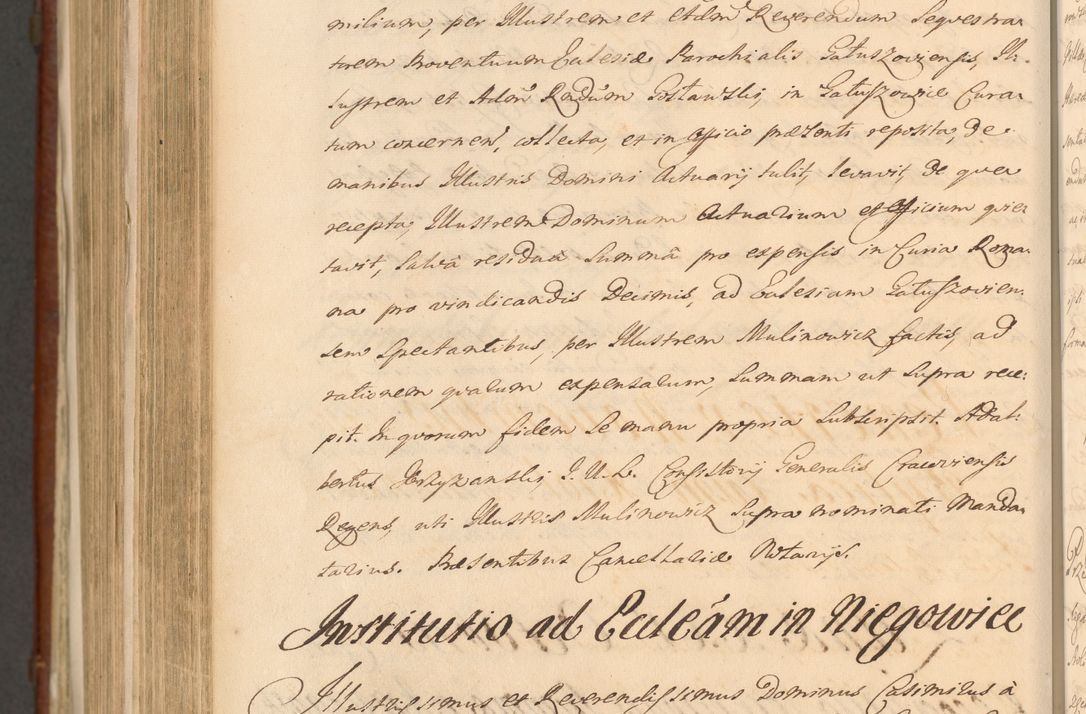 milium, per Illustrem et Adm. Reverendum Sequestra-
torem Proventuum Ecclesiæ Parochialis Gałuszoviensis, Il-
lustrem et Adm. Rndum Gosławski, in Gałuszowice Cura-
tum concernen, collecta, et in Officio præsenti reposita, de
manibus Illustris Domini Actuarij tulit, levavit, de qua
recepta, Illustrem Dominum Actuarium et Officium quie-
tavit, Salvâ residua Summâ pro expensis in Curia Roma-
na pro vindicandis Decimis, ad Eclesiam Gałuszovien-
sem Spectantibus, per Illustrem Mulinowicz factis, ad
rationem quarum expensarum, Summam ut Supra rece-
pit. In quorum fidem Se manu propria Subscripsit. Adal-
bertus J. U. L. Consistorij Generalis Cracoviensis
Regens, uti Illustris Mulinowicz Supra nominati Manda-
tarius. Præsentibus Cancellariæ Notarijs.
Institutio ad Eccleam in Niegowice
Illustrissimus et Reverendissimus Dominus Casimirus à